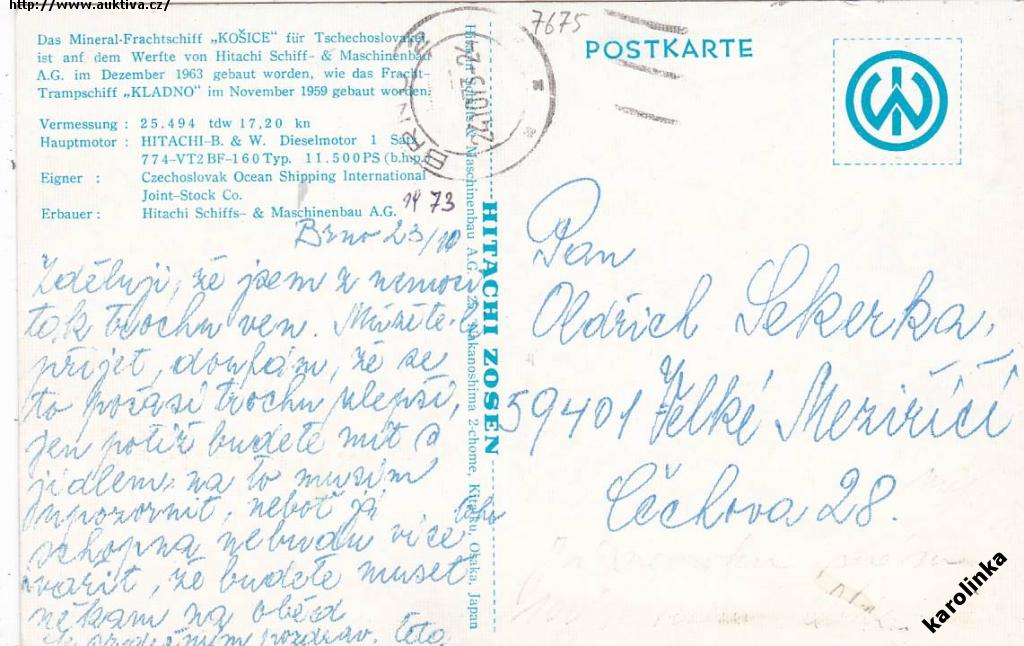 http://www.auktiva.cz/
Das Mineral-Frachtschiff „KOŠICE" für Tschechoslovakei,
ist auf dem Werfte von Hitachi Schiff- & Maschinenbau
A.G. im Dezember 1963 gebaut worden, wie das Fracht-
Trampschiff „KLADNO" im November 1959 gebaut worden.
Vermessung : 25.494 tdw 17,20 kn
Hauptmotor : HITACHI-B. & W. Dieselmotor 1 Satz
774-VT2BF-160Typ. 11.500PS (b.h.p.)
Eigner : Czechoslovak Ocean Shipping International
Joint-Stock Co.
Erbauer : Hitachi Schiffs- & Maschinenbau A.G.
19 73
Brno 23/10
Zděluji, že jsem z nemoci
tak trochu ven. Můžete-li
přijet, doufám, že se
to počasí trochu zlepší,
jen potíž budete mít s
jídlem, na to musím
upozornit, neboť já
schopna nebudu více
vařit, že budete muset
někam na oběd
Se srdečným pozdrav. teta
HITACHI ZOSEN
Maschinenbau A.G.
Nakanoshima 2-chome, Kita-ku, Osaka, Japan
BRNO
7675
POSTKARTE
Pan
Oldřich Sekerka,
59401 Velké Meziříčí
Čechova 28.
karolinka